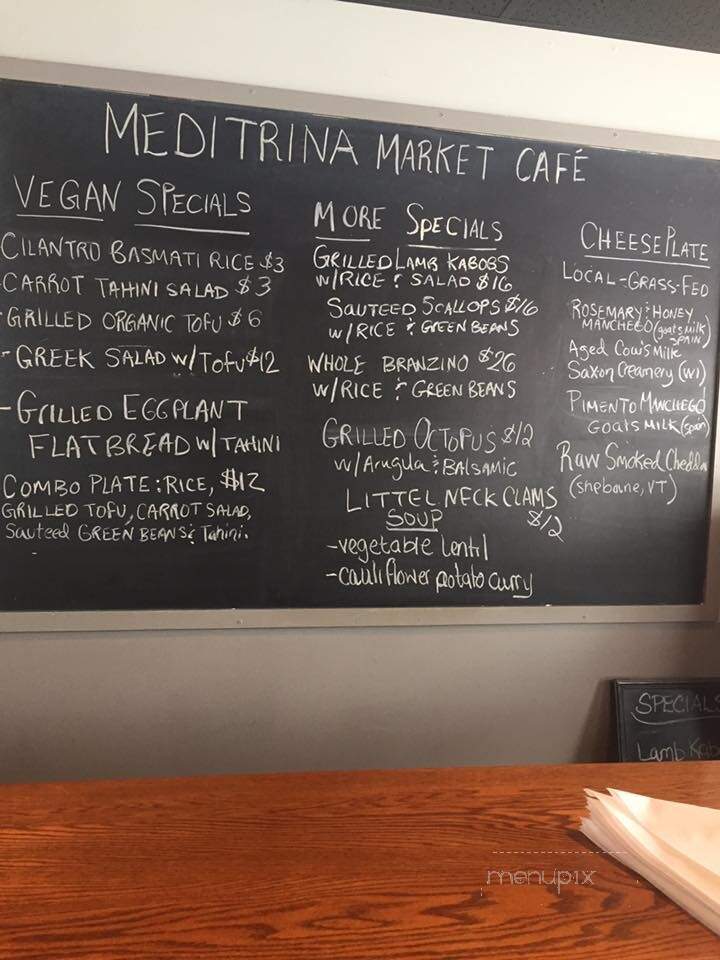 MEDITRINA MARKET CAFÉ
VEGAN SPECIALS
CILANTRO BASMATI RICE $3
-CARROT TAHINI SALAD $3
-GRILLED ORGANIC TOFU $6
-GREEK SALAD W/TOFU $12
-GRILLED EGGPLANT
FLATBREAD W/TAHINI
COMBO PLATE: RICE, $12
GRILLED TOFU, CARROT SALAD,
Sauteed GREEN BEANS & Tahini.
MORE SPECIALS
GRILLED LAMB KABOBS
W/RICE & SALAD $16
SAUTEED SCALLOPS $16
W/RICE & GREEN BEANS
WHOLE BRANZINO $26
W/RICE & GREEN BEANS
GRILLED OCTOPUS $12
W/Arugula & BALSAMIC
LITTEL NECK CLAMS
$12
SOUP
-vegetable lentil
-cauliflower potato curry
CHEESE PLATE
LOCAL-GRASS-FED
ROSEMARY & HONEY
MANCHEGO (goats milk)
SPAIN
Aged Cow's Milk
Saxon Creamery (WI)
PIMENTO MANCHEGO
Goats Milk (Spain)
Raw Smoked Chedda
(Shelburne, VT)
SPECIALS
Lamb Kab
menupix